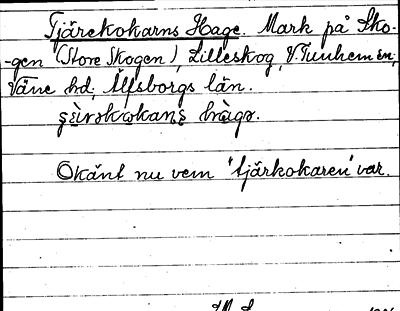 Tjärekokarns Hage. Mark på Sko-
-gen (Store Skogen), Lilleskog, V. Tunhem sn;
Väne hd; Älfsborgs län.
Okänt nu vem "tjärkokaren" var.